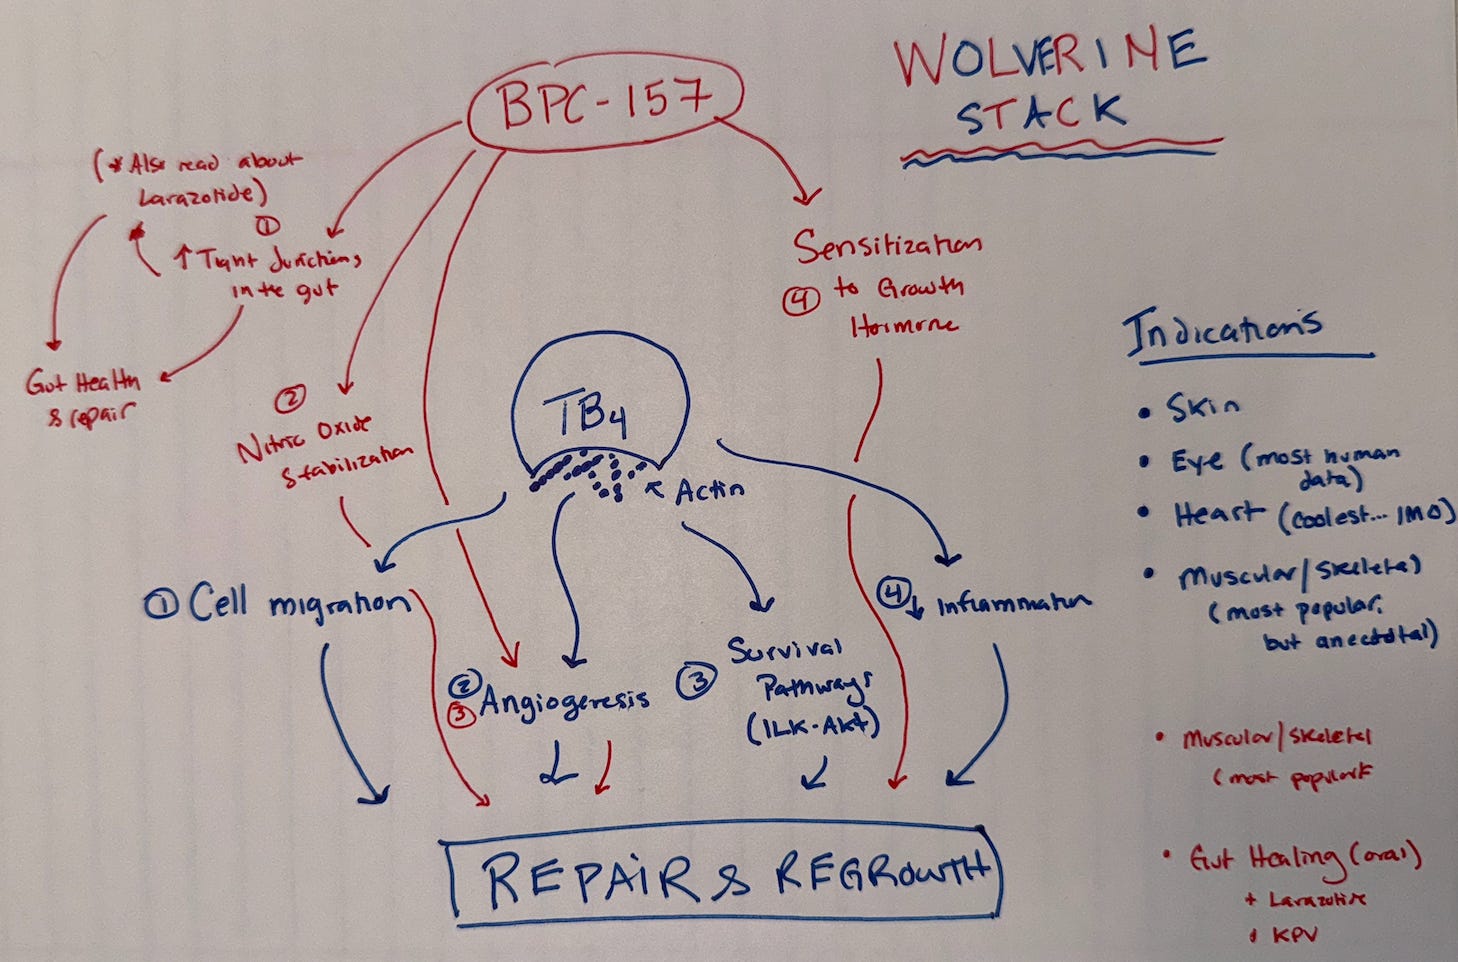 WOLVERINE
STACK
BPC-157
(* Also read about
Larazotide)
①
↑ Tight Junctions
in the gut
Gut Health
& repair
②
Nitric Oxide
Stabilization
Sensitization
④ to Growth
Hormone
TB4
Actin
① Cell migration
②
③ Angiogenesis
③ Survival
Pathways
(ILK-Akt)
④ ↓ Inflammation
REPAIR & REGROWTH
Indications
• Skin
• Eye (most human
data)
• Heart (coolest... IMO)
• Muscular/skeletal
(most popular,
but anecdotal)
• Muscular/skeletal
(most popular
• Gut Healing (oral)
+ Larazotide
+ KPV